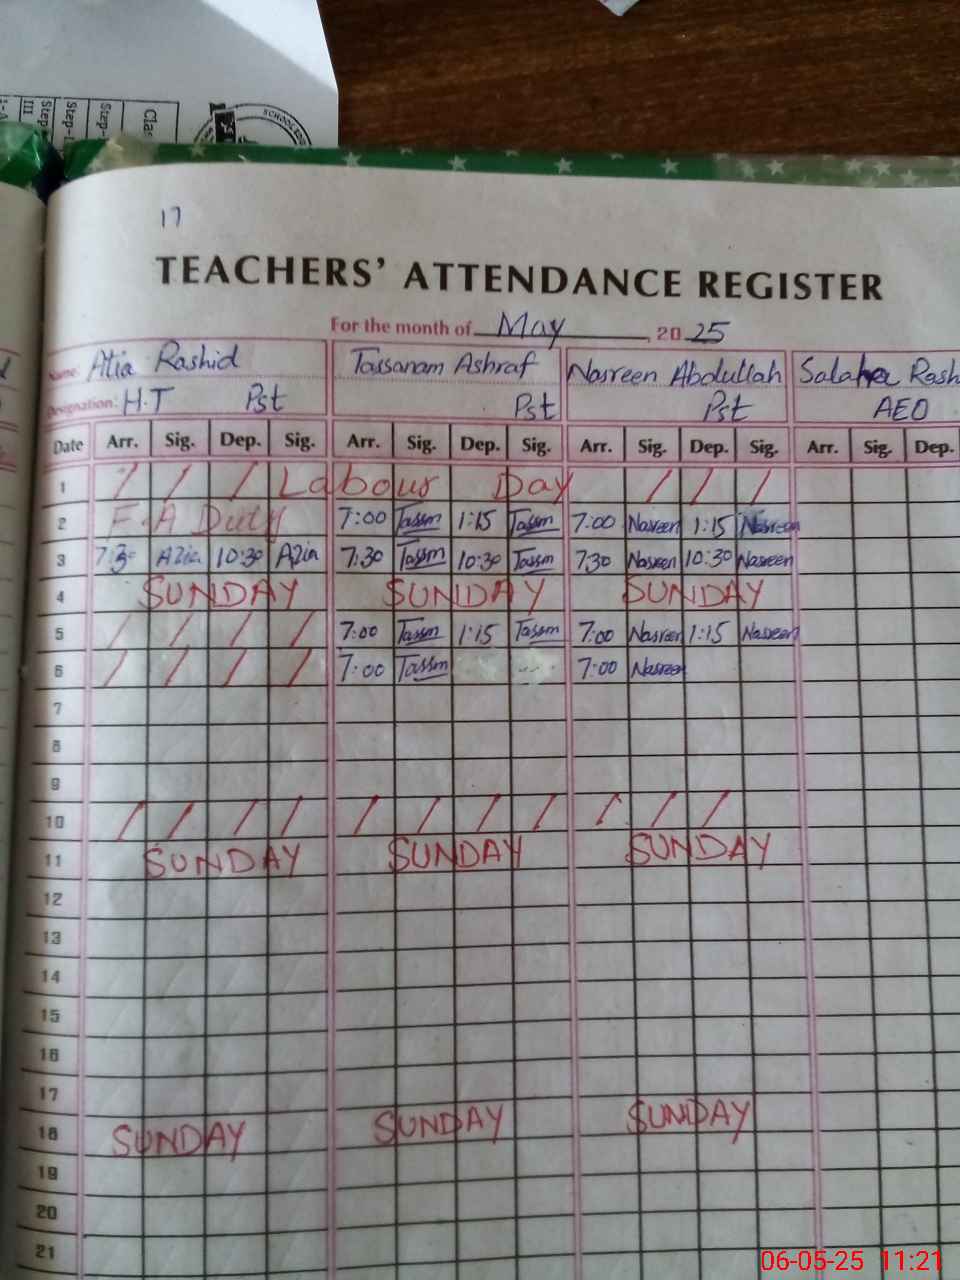 SCHOOL EDU
Clas
Step-
Step-I
Step-
III
17
TEACHERS' ATTENDANCE REGISTER
For the month of May, 2025
Name: Atia Rashid Tassanam Ashraf Nasreen Abdullah Salaha Rash
Designation: H.T Pst Pst Pst AEO
Date Arr. Sig. Dep. Sig. Arr. Sig. Dep. Sig. Arr. Sig. Dep. Sig. Arr. Sig. Dep.
1 / / / Labour Day / / /
2 F.A Duty 7:00 Tassm 1:15 Tassm 7:00 Nasreen 1:15 Nasreen
3 7:30 Azia 10:30 Azia 7:30 Tassm 10:30 Tassm 730 Nasreen 10:30 Nasreen
4 SUNDAY SUNDAY SUNDAY
5 / / / / 7:00 Tassm 1:15 Tassm 7:00 Nasreen 1:15 Nasreen
6 / / / / 7:00 Tassm 7:00 Nasreen
7
8
9
10 / / / / / / / / / / /
11 SUNDAY SUNDAY SUNDAY
12
13
14
15
16
17
18 SUNDAY SUNDAY SUNDAY
19
20
21
06-05-25 11:21